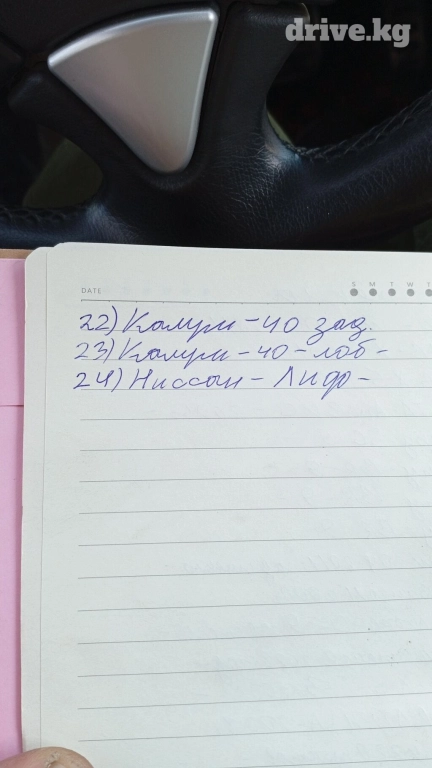 drive.kg
DATE S M T W T
22) Камри - 40 зад.
23) Камри - 40 - лоб -
24) Ниссан - Лиф -